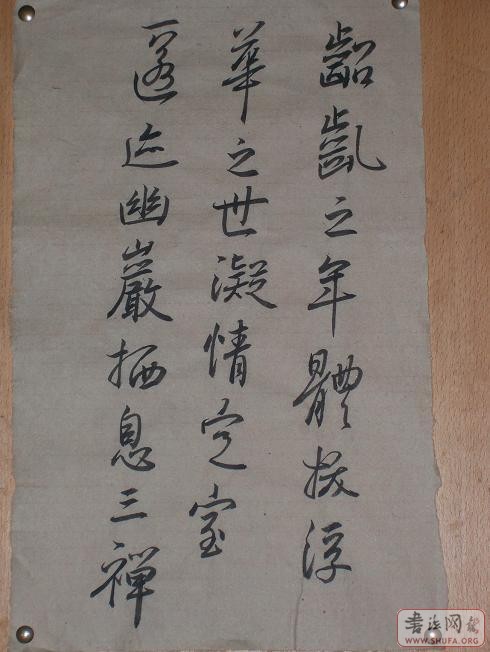 齠齓之年體拔浮
華之世凝情定室
匿迹幽巖栖息三禪
書法网
WWW.SHUFA.ORG